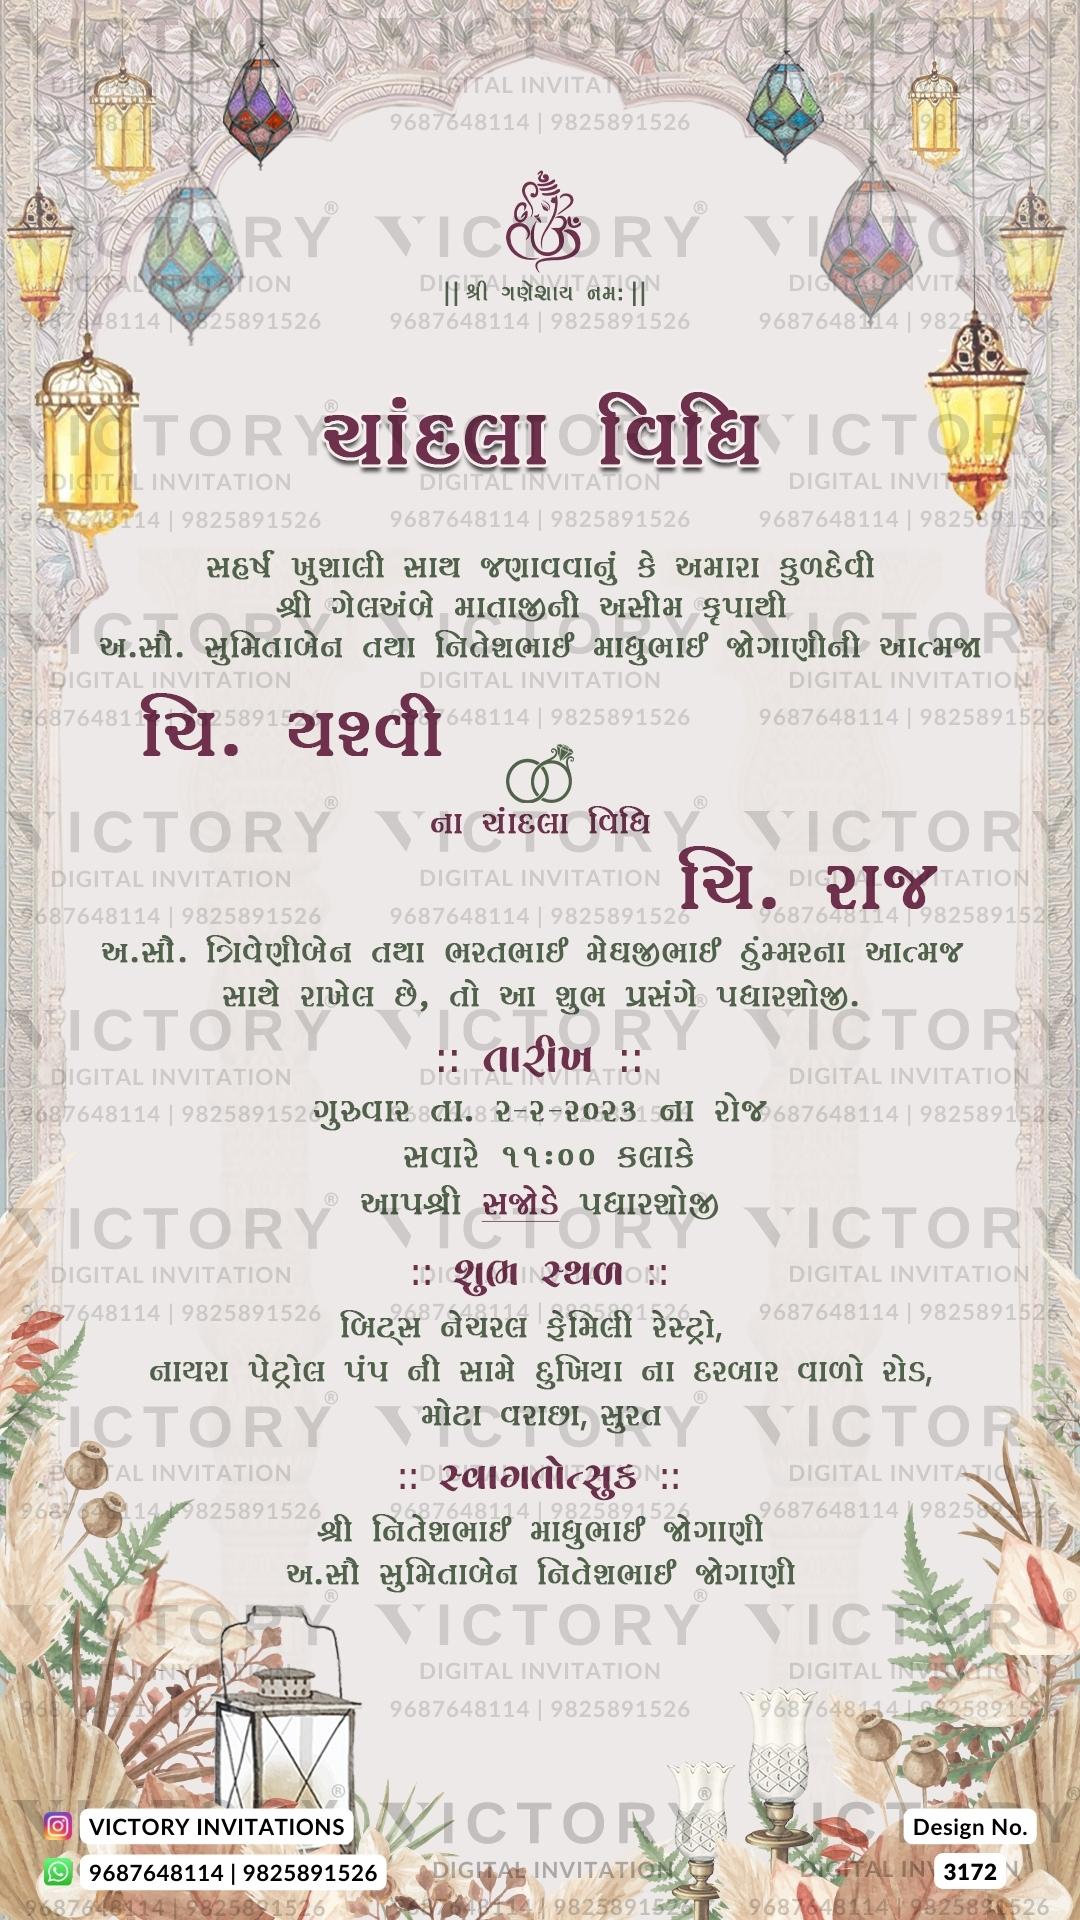 || श्री गणेशाय नम: ||
ચાંદલા વિધિ
સહર્ષ ખુશાલી સાથ જણાવવાનું કે અમારા કુળદેવી
શ્રી ગેલઅંબે માતાજીની અસીમ કૃપાથી
અ.સૌ. સુમિતાબેન તથા નિતેશભાઈ માધુભાઈ જોગાણીની આત્મજા
ચિ. યશ્વી
ના ચાંદલા વિધિ
ચિ. રાજ
અ.સૌ. ત્રિવેણીબેન તથા ભરતભાઈ મેઘજીભાઈ ઠુંમ્મરના આત્મજ
સાથે રાખેલ છે, તો આ શુભ પ્રસંગે પધારશોજી.
:: તારીખ ::
ગુરુવાર તા. ૨-૨-૨૦૨૩ ના રોજ
સવારે ૧૧:૦૦ કલાકે
આપશ્રી સજોડે પધારશોજી
:: શુભ સ્થળ ::
બિટ્સ નેચરલ ફેમિલી રેસ્ટ્રો,
નાયરા પેટ્રોલ પંપ ની સામે દુખિયા ના દરબાર વાળો રોડ,
મોટા વરાછા, સુરત
:: સ્વાગતોત્સુક ::
શ્રી નિતેશભાઈ માધુભાઈ જોગાણી
અ.સૌ સુમિતાબેન નિતેશભાઈ જોગાણી
VICTORY INVITATIONS
9687648114 | 9825891526
Design No.
3172
VICTORY®
DIGITAL INVITATION
9687648114 | 9825891526